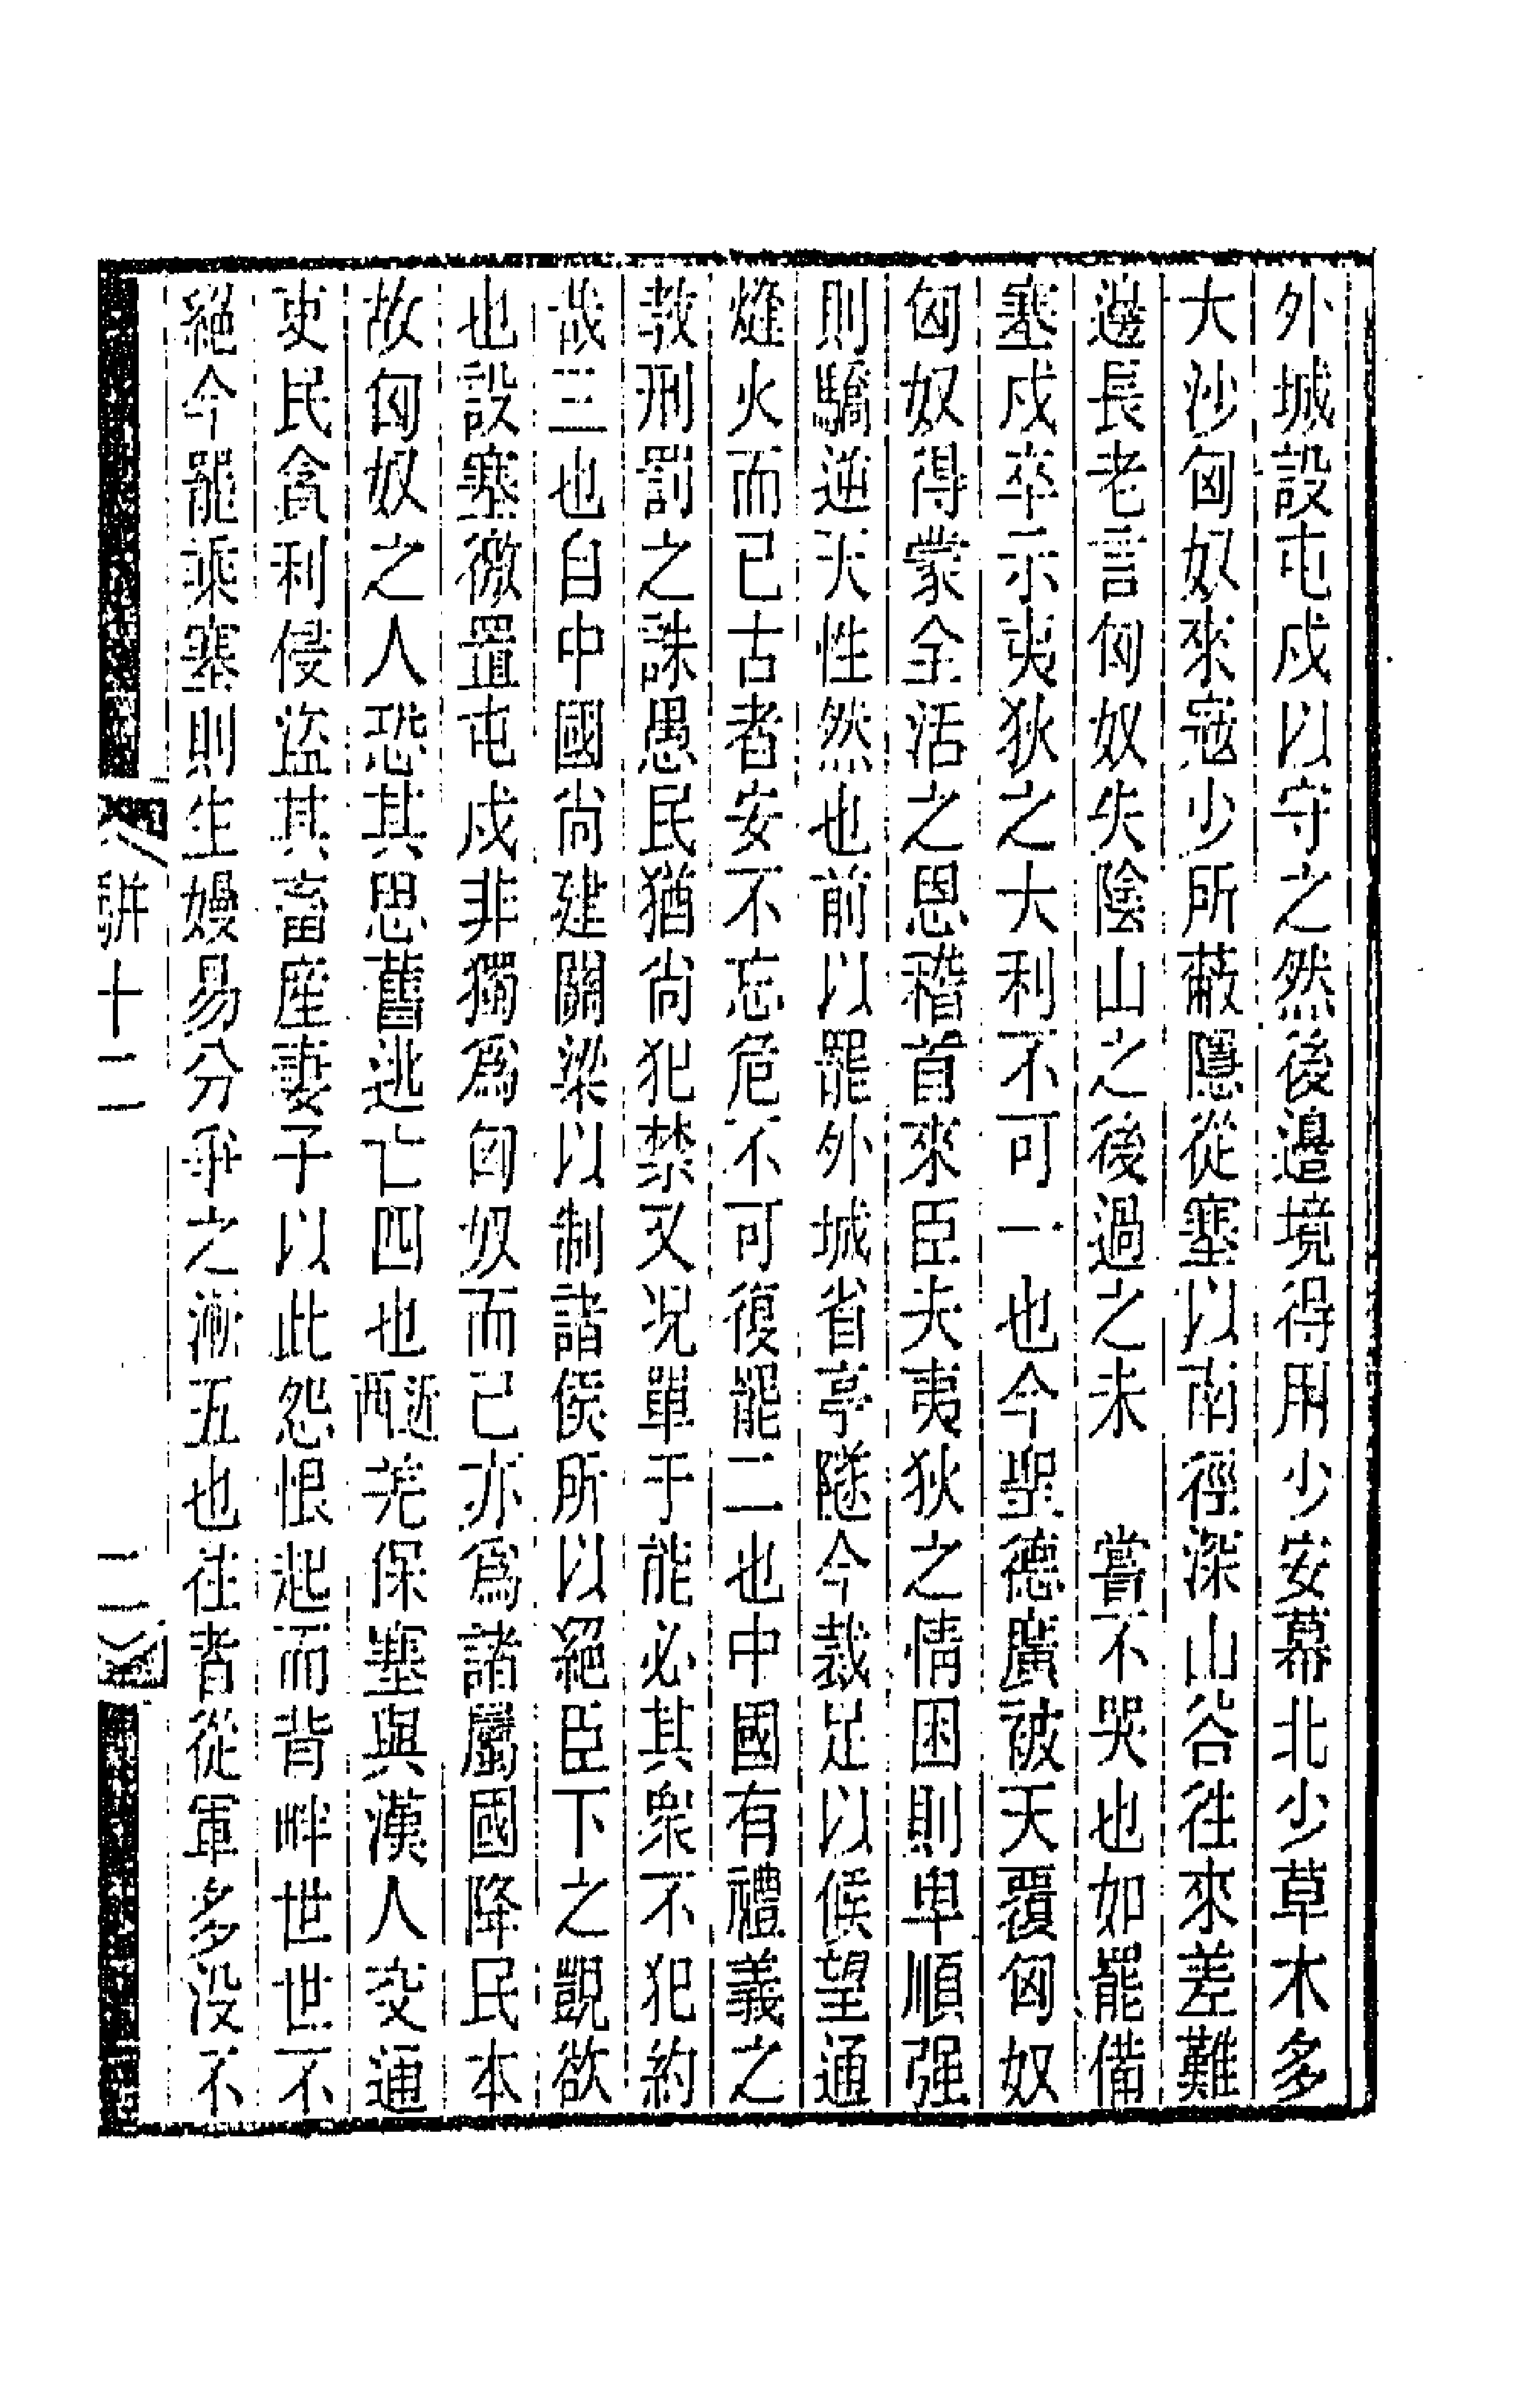 外城設屯戍以守之然後邊境得用少安幕北少草木多
大沙匈奴來寇少所蔽隱從塞以南徑深山谷往來差難
邊長老言匈奴失陰山之後過之未　嘗不哭也如罷備
塞戍卒示夷狄之大利不可一也今聖德廣被天覆匈奴
匈奴得蒙全活之恩稽首來臣夫夷狄之情困則卑順强
則驕逆天性然也前以罷外城省亭隧今裁足以候望通
熢火而已古者安不忘危不可復罷二也中國有禮義之
教刑罰之誅愚民猶尚犯禁又况單于能必其衆不犯約
哉三也自中國尚建關梁以制諸侯所以絕臣下之覬欲
也設塞徼置屯戍非獨爲匈奴而己亦爲諸屬國降民本
故匈奴之人恐其思舊逃亡四也近西羌保塞與漢人交通
吏民貪利侵盜其畜產妻子以此怨恨起而背畔世世不
絕今罷乘塞則生嫚易分爭之漸五也往者從軍多没不
駢十二
二